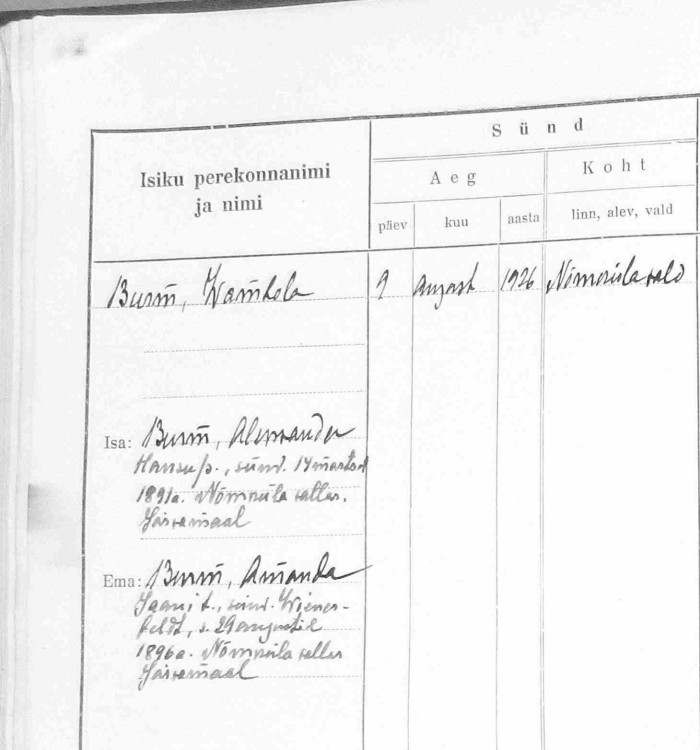 Sünd
Isiku perekonnanimi
ja nimi
Aeg
Koht
päev kuu aasta linn, alev, vald
Burm̅, Wam̅bola 9 august 1926 Nõmmküla vald
Isa: Burm̅, Alexander
Hansu p., sünd. 14 märtsil
1891a. Nõmmküla vallas,
Järvamaal
Ema: Burm̅, Amanda
Jaani t., sünd.
s. 29 augustil
1896a. Nõmmküla vallas
Järvamaal